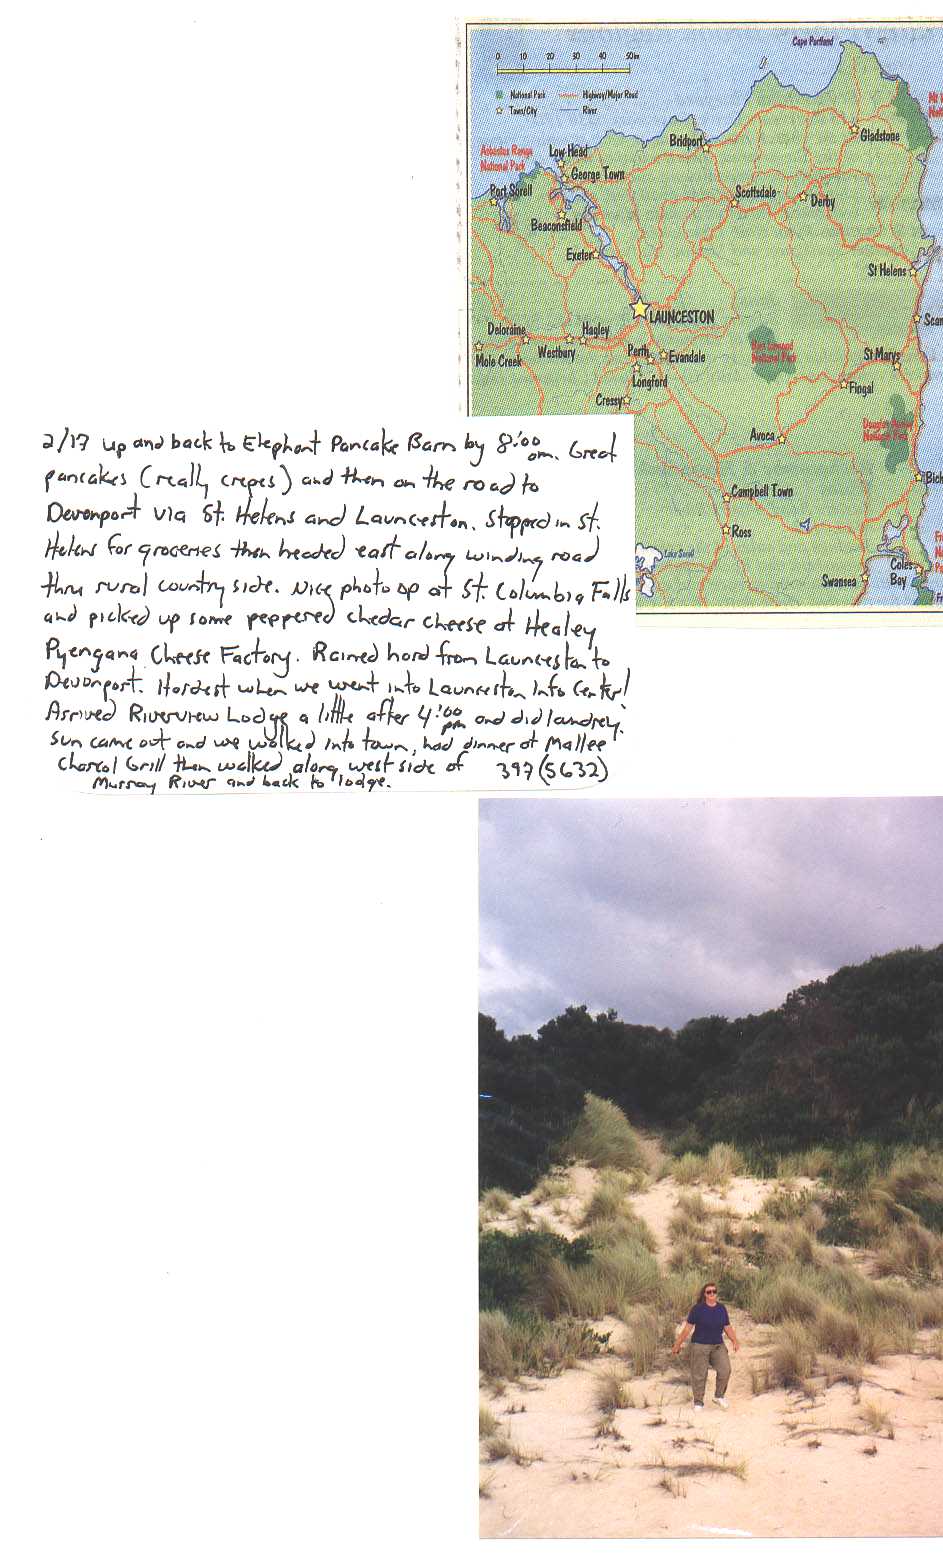 Cape Portland
0 10 20 30 40 50km
National Park Highway/Major Road
Town/City River
Gladstone
Bridport
Asbestos Range
National Park
Low Head
George Town
Port Sorell
Scottsdale
Derby
Beaconsfield
Exeter
St Helens
LAUNCESTON
Scam
Deloraine
Hagley
Mole Creek
Westbury
Perth
Evandale
Ben Lomond
National Park
St Marys
Longford
Fingal
Cressy
Douglas Apsley
National Park
Avoca
Bich
Campbell Town
Ross
Lake Sorell
Coles
Bay
Swansea
2/17 up and back to Elephant Pancake Barn by 8:00 am. Great
pancakes (really crepes) and then on the road to
Devonport via St. Helens and Launceston. Stopped in St.
Helens for groceries then headed east along winding road
thru rural country side. Nice photo op at St. Columbia Falls
and picked up some peppered chedar cheese at Healey
Pyengana Cheese Factory. Rained hard from Launceston to
Devonport. Hardest when we went into Launceston Info Center!
Arrived Riverview Lodge a little after 4:00 pm and did laundrey.
Sun came out and we walked into town, had dinner at Mallee
Charcol Grill then walked along west side of 397 (5632)
Mursay River and back to lodge.